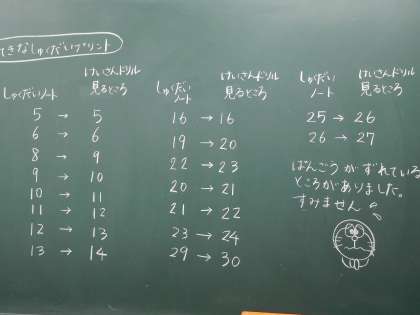 てきなしゅくだいプリント
しゅくだいノート けいさんドリル見るところ
5 → 5
6 → 6
8 → 9
9 → 10
10 → 11
11 → 12
12 → 13
13 → 14
しゅくだいノート けいさんドリル見るところ
16 → 16
19 → 20
22 → 23
20 → 21
21 → 22
23 → 24
29 → 30
しゅくだいノート けいさんドリル見るところ
25 → 26
26 → 27
ばんごうがずれている
ところがありました。
すみません